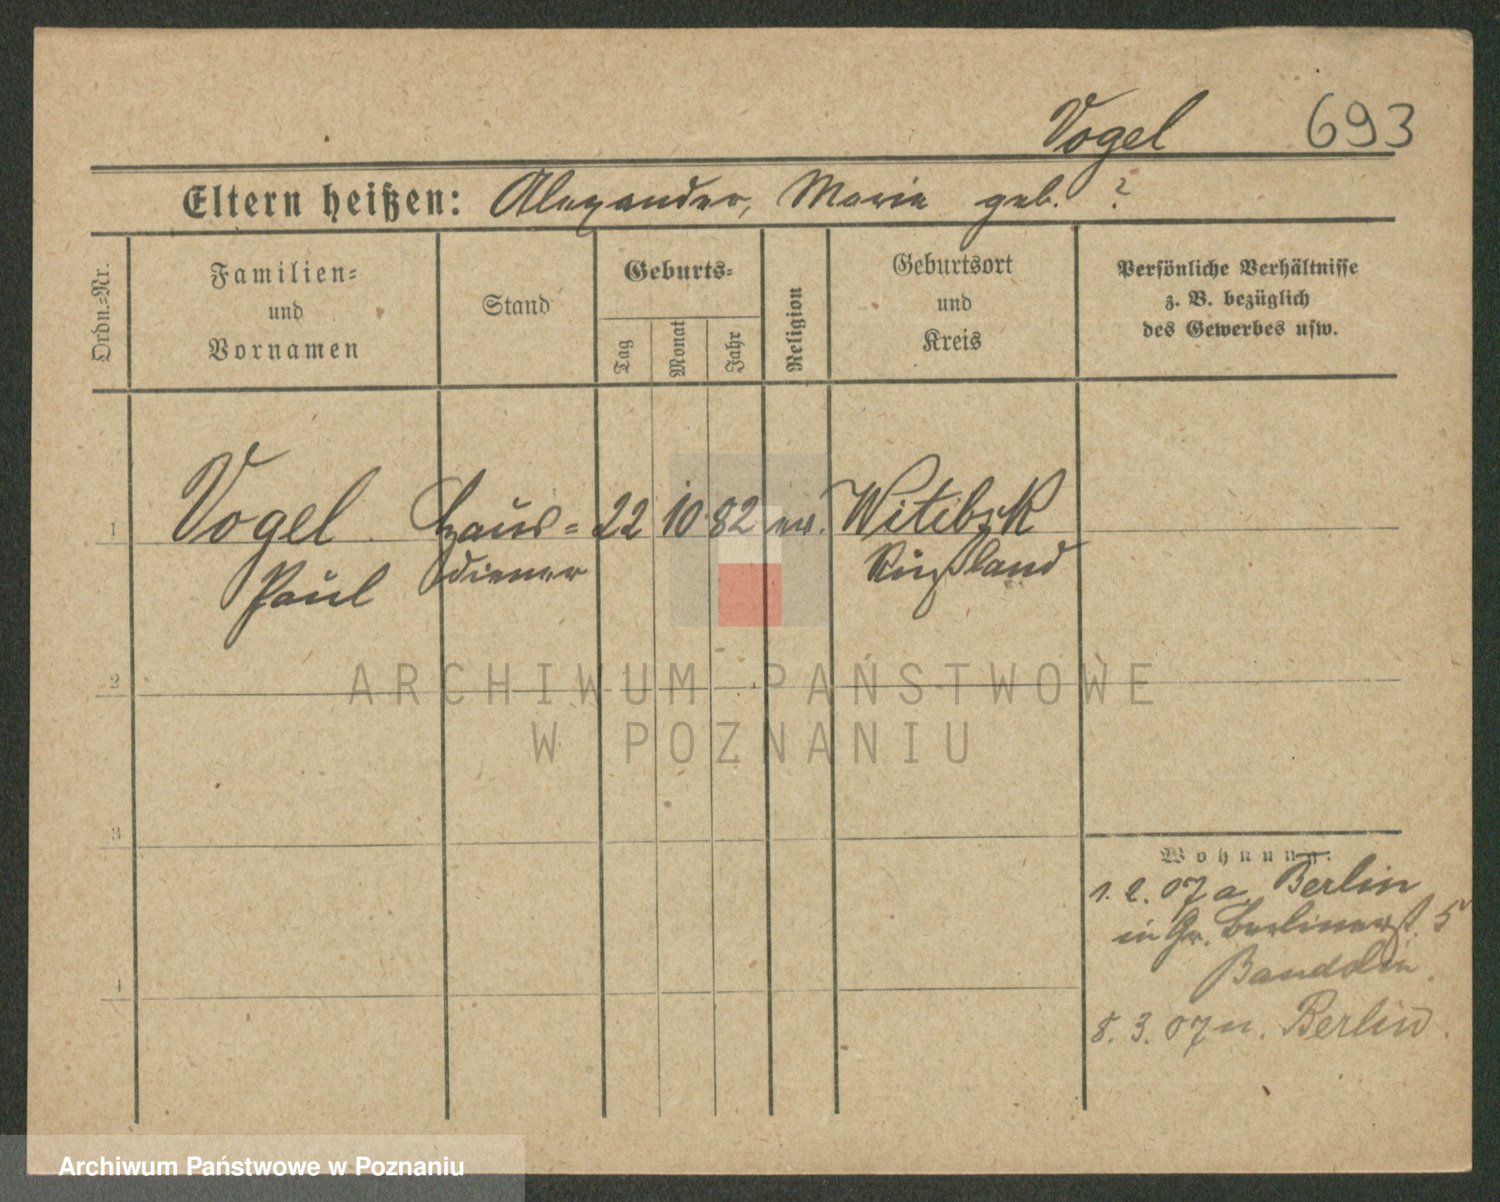 Vogel 693
Eltern heißen: Alexander, Marie geb. ?
Ordn.=Nr.
Familien=
und
Vornamen
Stand
Geburts=
Tag
Monat
Jahr
Religion
Geburtsort
und
Kreis
Persönliche Verhältnisse
z. B. bezüglich
des Gewerbes usw.
1 Vogel Haus= 22 10 82 ev. Witebsk
Paul diener Rußland
2
ARCHIWUM PAŃSTWOWE
W POZNANIU
3
Wohnung:
1. 2. 07 a. Berlin
in Gr. Berlinerst. 5
4
8. 3. 07 n. Berlin.
Archiwum Państwowe w Poznaniu